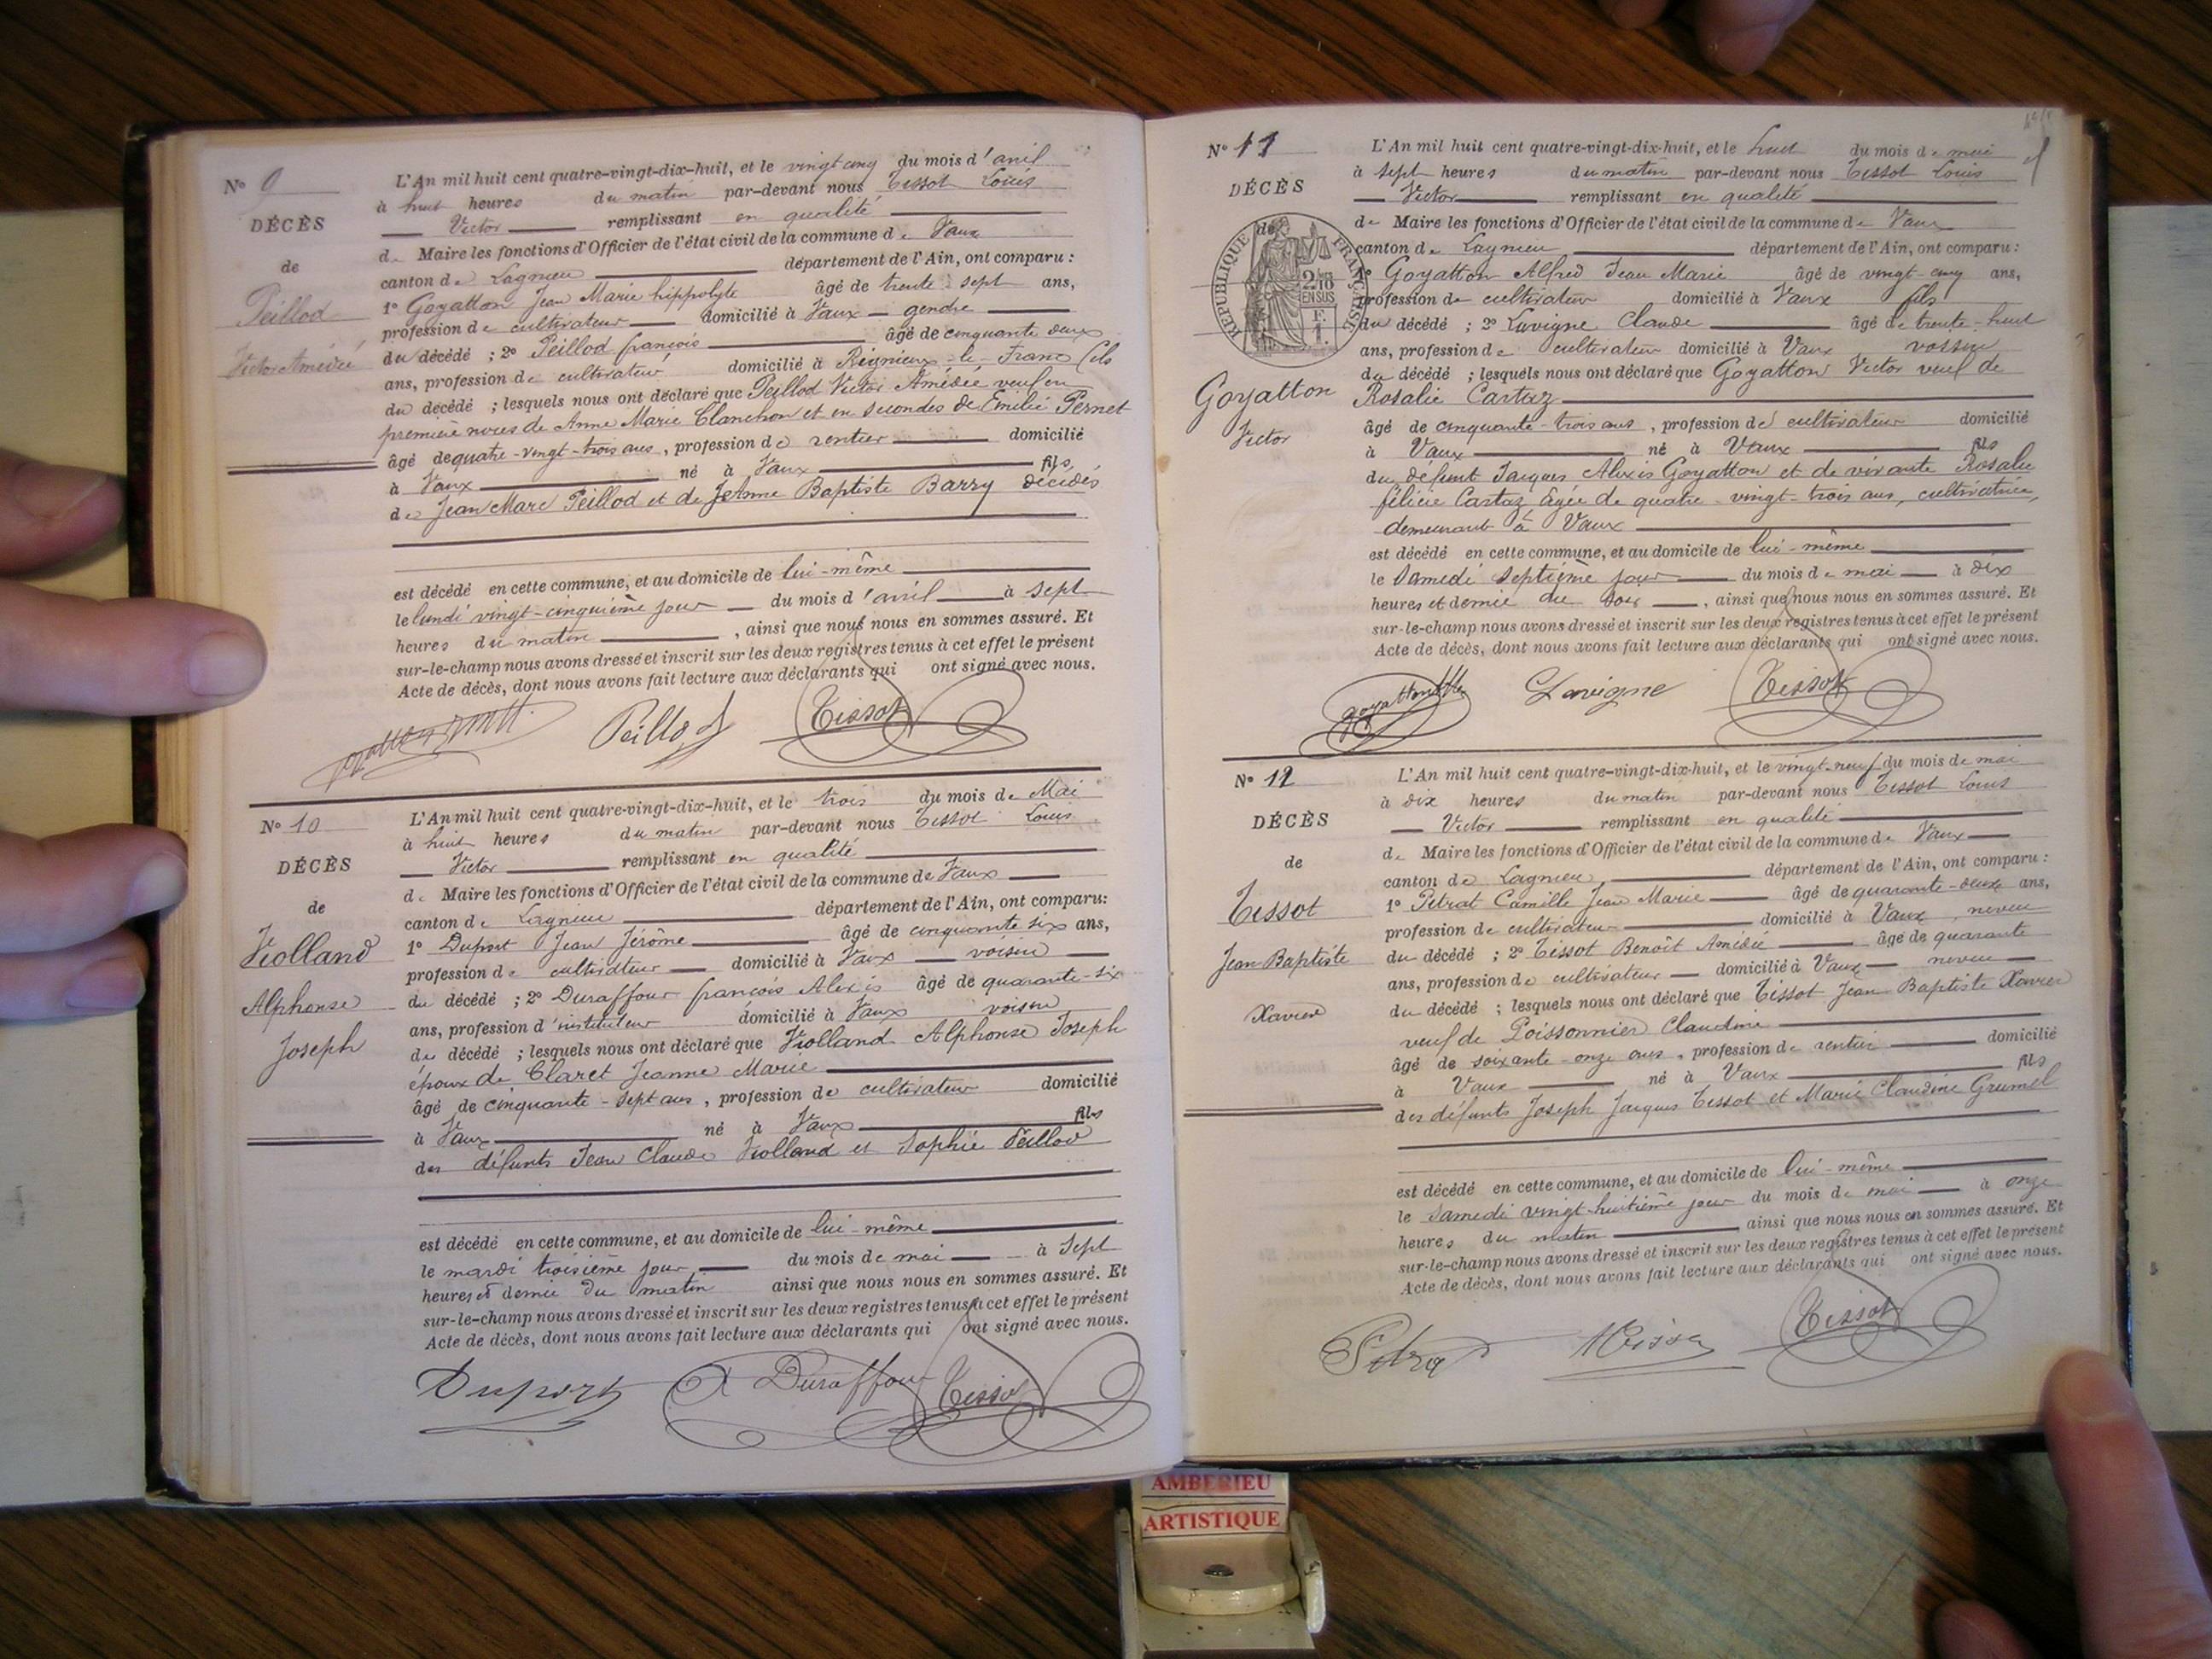 N° 9
DÉCÈS
de
Peillod
Victor Amédée
L'An mil huit cent quatre-vingt-dix-huit, et le vingt cinq du mois d'avril
à huit heures du matin par-devant nous Tissot Louis
Victor remplissant en qualité
de Maire les fonctions d'Officier de l'état civil de la commune de Vaux
canton de Lagnieu département de l'Ain, ont comparu :
1° Goyatton Jean Marie hippolyte âgé de trente sept ans,
profession de cultivateur domicilié à Vaux gendre
du décédé ; 2° Peillod françois âgé de cinquante deux
ans, profession de cultivateur domicilié à Reignieux-le-Franc fils
du décédé ; lesquels nous ont déclaré que Peillod Victor Amédée veuf en
première noces de Anne Marie Clanchon et en secondes de Emilie Pernet
âgé de quatre-vingt-trois ans, profession de rentier domicilié
à Vaux né à Vaux fils
de Jean Marc Peillod et de Jeanne Baptiste Barry décédés
est décédé en cette commune, et au domicile de lui-même
le lundi vingt-cinquième jour du mois d'avril à sept
heures du matin , ainsi que nous nous en sommes assuré. Et
sur-le-champ nous avons dressé et inscrit sur les deux registres tenus à cet effet le présent
Acte de décès, dont nous avons fait lecture aux déclarants qui ont signé avec nous.
Peillod Tissot
N° 10
DÉCÈS
de
Violland
Alphonse
Joseph
L'An mil huit cent quatre-vingt-dix-huit, et le trois du mois de Mai
à huit heures du matin par-devant nous Tissot Louis
Victor remplissant en qualité
de Maire les fonctions d'Officier de l'état civil de la commune de Vaux
canton de Lagnieu département de l'Ain, ont comparu :
1° Duport Jean Jérôme âgé de cinquante six ans,
profession de cultivateur domicilié à Vaux voisin
du décédé ; 2° Duraffour françois Alexis âgé de quarante-six
ans, profession d'instituteur domicilié à Vaux voisin
du décédé ; lesquels nous ont déclaré que Violland Alphonse Joseph
époux de Claret Jeanne Marie
âgé de cinquante-sept ans, profession de cultivateur domicilié
à Vaux né à Vaux fils
des défunts Jean Claude Violland et Sophie Peillod
est décédé en cette commune, et au domicile de lui-même
le mardi troisième jour du mois de mai à sept
heures et demie du matin ainsi que nous nous en sommes assuré. Et
sur-le-champ nous avons dressé et inscrit sur les deux registres tenus à cet effet le présent
Acte de décès, dont nous avons fait lecture aux déclarants qui ont signé avec nous.
Duport A Duraffour Tissot
N° 11
DÉCÈS
de
RÉPUBLIQUE FRANÇAISE
2/10
EN SUS
Goyatton
Victor
L'An mil huit cent quatre-vingt-dix-huit, et le huit du mois de mai
à sept heures du matin par-devant nous Tissot Louis
Victor remplissant en qualité
de Maire les fonctions d'Officier de l'état civil de la commune de Vaux
canton de Lagnieu département de l'Ain, ont comparu :
1° Goyatton Alfred Jean Marie âgé de vingt-cinq ans,
profession de cultivateur domicilié à Vaux fils
du décédé ; 2° Lavigne Claude âgé de trente-huit
ans, profession de cultivateur domicilié à Vaux voisin
du décédé ; lesquels nous ont déclaré que Goyatton Victor veuf de
Rosalie Cartaz
âgé de cinquante-trois ans, profession de cultivateur domicilié
à Vaux né à Vaux fils
du défunt Jacques Alexis Goyatton et de vivante Rosalie
félicie Cartaz âgée de quatre-vingt-trois ans, cultivatrice,
demeurant à Vaux
est décédé en cette commune, et au domicile de lui-même
le samedi septième jour du mois de mai à dix
heures et demie du soir , ainsi que nous nous en sommes assuré. Et
sur-le-champ nous avons dressé et inscrit sur les deux registres tenus à cet effet le présent
Acte de décès, dont nous avons fait lecture aux déclarants qui ont signé avec nous.
CLavigne Tissot
N° 12
DÉCÈS
de
Tissot
Jean Baptiste
Xavier
L'An mil huit cent quatre-vingt-dix-huit, et le vingt-neuf du mois de mai
à dix heures du matin par-devant nous Tissot Louis
Victor remplissant en qualité
de Maire les fonctions d'Officier de l'état civil de la commune de Vaux
canton de Lagnieu département de l'Ain, ont comparu :
1° Pitrat Camille Jean Marie âgé de quarante-deux ans,
profession de cultivateur domicilié à Vaux, neveu
du décédé ; 2° Tissot Benoît Amédée âgé de quarante
ans, profession de cultivateur domicilié à Vaux neveu
du décédé ; lesquels nous ont déclaré que Tissot Jean Baptiste Xavier
veuf de Poissonnier Claudine
âgé de soixante-onze ans, profession de rentier domicilié
à Vaux né à Vaux fils
des défunts Joseph Jacques Tissot et Marie Claudine Grumel
est décédé en cette commune, et au domicile de lui-même
le samedi vingt-huitième jour du mois de mai à onze
heures du matin ainsi que nous nous en sommes assuré. Et
sur-le-champ nous avons dressé et inscrit sur les deux registres tenus à cet effet le présent
Acte de décès, dont nous avons fait lecture aux déclarants qui ont signé avec nous.
Tissot
AMBERIEU
ARTISTIQUE